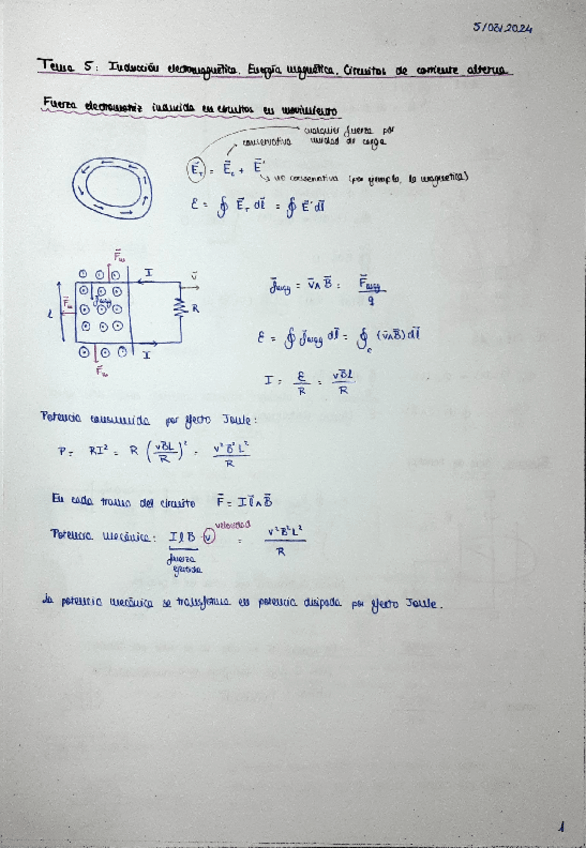 5/03/2024
Tema 5: Inducción electromagnética. Energía magnética. Circuitos de corriente alterna
Fuerza electromotriz inducida en circuitos en movimiento
cualquier fuerza por
unidad de carga
conservativa
E⃗_T = E⃗_c + E⃗'
no conservativa (por ejemplo, la magnética)
ℰ = ∮ E⃗_T dl⃗ = ∮ E⃗' dl⃗
F⃗_m
I
v̄
F⃗_m
l
R
I
F⃗_m
f̄_mag = v̄∧B̄ = F̄_mag / q
ℰ = ∮ f̄_mag dl̄ = ∮_c (v̄∧B̄) dl̄
I = ℰ/R = vBl/R
Potencia consumida por efecto Joule:
P = RI² = R (vBL/R)² = v²B²L²/R
En cada tramo del circuito F̄ = I l̄∧B̄
velocidad
Potencia mecánica: I l B · v = v²B²L²/R
fuerza
ejercida
La potencia mecánica se transforma en potencia disipada por efecto Joule.
1